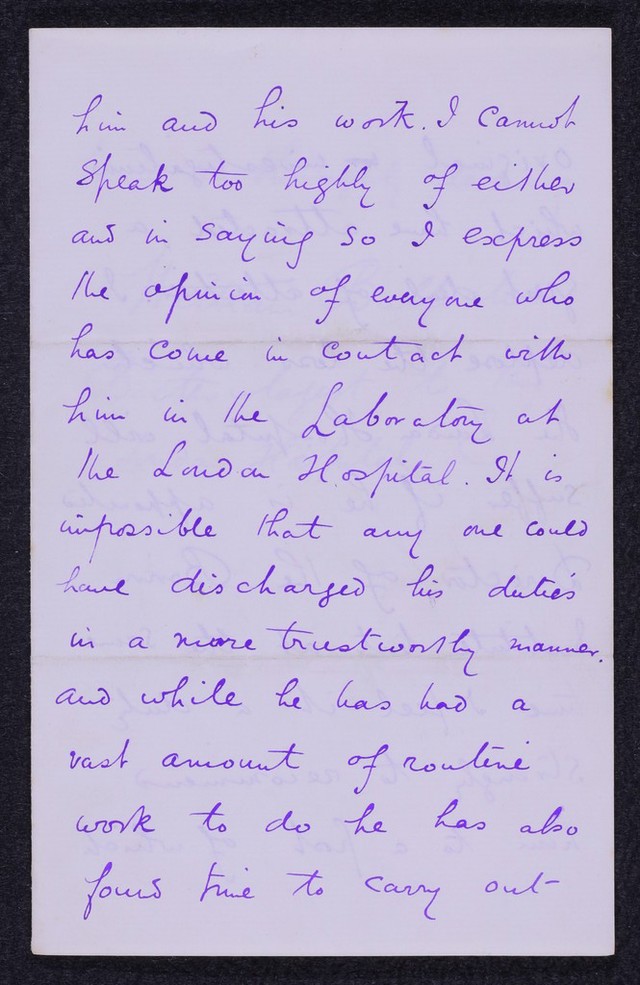 him and his work. I cannot
speak too highly of either
and in saying so I express
the opinion of everyone who
has come in contact with
him in the Laboratory at
the London Hospital. It is
impossible that any one could
have discharged his duties
in a more trustworthy manner.
and while he has had a
vast amount of routine
work to do he has also
found time to carry out